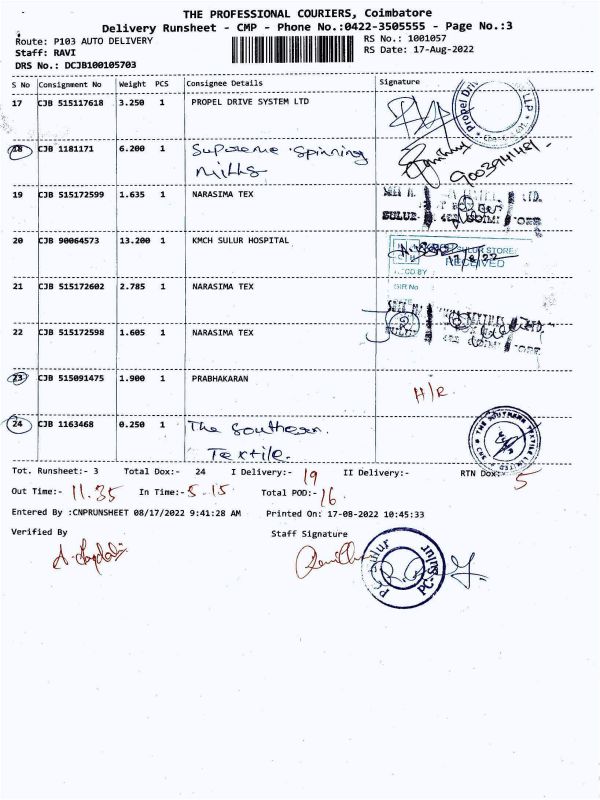 THE PROFESSIONAL COURIERS, Coimbatore
Delivery Runsheet - CMP - Phone No.:0422-3505555 - Page No.:3
Route: P103 AUTO DELIVERY RS No.: 1001057
Staff: RAVI RS Date: 17-Aug-2022
DRS No.: DCJB100105703
S No Consignment No Weight PCS Consignee Details Signature
17 CJB 515117618 3.250 1 PROPEL DRIVE SYSTEM LTD
Propel Dri LLP
18 CJB 1181171 6.200 1 Supreme Spinning
Mills
19 CJB 515172599 1.635 1 NARASIMA TEX
SULUR
20 CJB 90064573 13.200 1 KMCH SULUR HOSPITAL
SULUR STORE
RECEIVED
17/8/22
GIR No
21 CJB 515172602 2.785 1 NARASIMA TEX
22 CJB 515172598 1.605 1 NARASIMA TEX
23 CJB 515091475 1.900 1 PRABHAKARAN
H/R
24 CJB 1163468 0.250 1 The Southern
Textile.
THE SOUTHERN TEXTILE
Tot. Runsheet:- 3 Total Dox:- 24 I Delivery:- 19 II Delivery:- RTN Dox:- 5
Out Time:- 11.35 In Time:- 5.15 Total POD:- 16
Entered By :CNPRUNSHEET 08/17/2022 9:41:28 AM Printed On: 17-08-2022 10:45:33
Verified By Staff Signature
PC-Sulur PC-Sulur